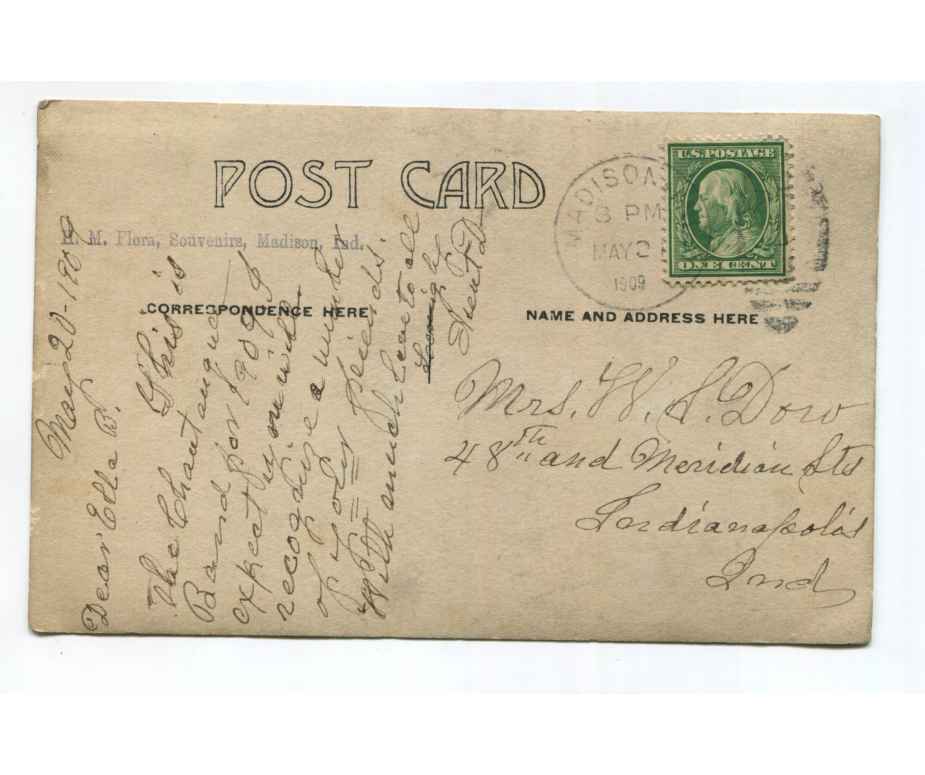 POST CARD
H. M. Flora, Souvenirs, Madison, Ind.
CORRESPONDENCE HERE
NAME AND ADDRESS HERE
U.S. POSTAGE
ONE CENT
MADISON
8 PM
MAY 2
1909
May 20-1909
Dear Ella B.
This is
the Chautauqua
Band for 1909 I
expect you will
recognize a number
of your friends.
With much love to all
Aunt D.
Mrs. W. S. Dow
48th and Meridian Sts
Indianapolis
Ind